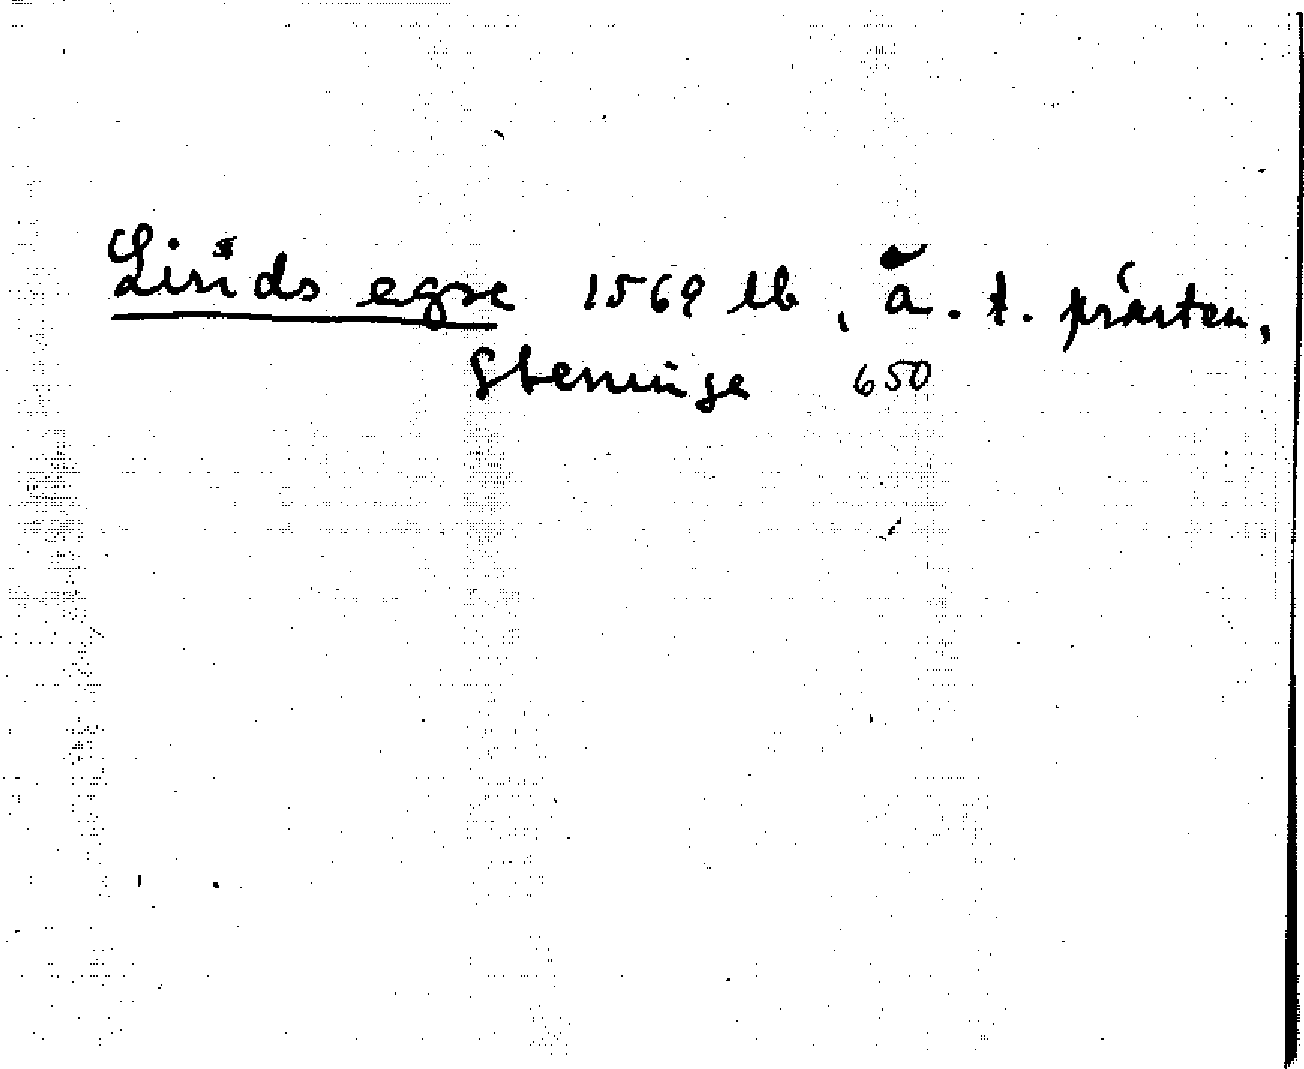 Lisids egne 1569 lb, å. t. prästen,
Steninge 650